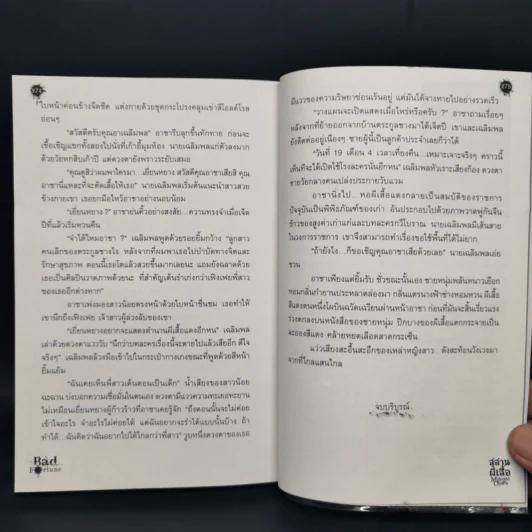 ใบหน้าค่อนข้างจืดชืด แต่งกายด้วยชุดกระโปรงคลุมเข่าสีโอลด์โรส
อ่อนๆ
"สวัสดีครับคุณอาเฉลิมพล" อาชารีบลุกขึ้นทักทาย ก่อนจะ
เชื้อเชิญแขกทั้งสองไปนั่งที่เก้าอี้มุมห้อง นายเฉลิมพลแก่ตัวลงมาก
ด้วยวัยหกสิบเก้าปี แต่ดวงตายังพราวระยับเสมอ
"คุณดูสิว่าผมพาใครมา...เยี่ยนหยาง สวัสดีคุณอาชาเสียสิ คุณ
อาชานี่แหละที่จะตัดเสื้อให้เธอ" นายเฉลิมพลเริ่มต้นแนะนำสาวสวย
ข้างกายเขา เธอยกมือไหว้อาชาอย่างนอบน้อม
"เยี่ยนหยาง ?" อาชาย่นคิ้วอย่างสงสัย...ความทรงจำเมื่อเจ็ด
ปีที่แล้วเริ่มหวนคืน
"จำได้ไหมอาชา ?" เฉลิมพลพูดด้วยรอยยิ้มกว้าง "ลูกสาว
คนเล็กของตระกูลซางไง หลังจากที่ผมพาเธอไปบำบัดทางจิตและ
รักษาสุขภาพ ตอนนี้เธอโตแล้วและสวยขึ้นมากเลยนะ แถมยังฉลาดด้วย
เธอเป็นศิลปินวาดภาพด้วยนะ ที่สำคัญเต้นรำเก่งกว่าเฟิงเฟยพี่สาว
ของเธออีกต่างหาก"
อาชาเพ่งมองสาวน้อยตรงหน้าด้วยใบหน้าชื่นชม เธอทำให้
เขานึกถึงเฟิงเฟย เจ้าสาวผู้ล่วงลับของเขา
"เยี่ยนหยางอยากจะแสดงตำนานผีเสื้อแดงอีกหน" เฉลิมพล
เล่าด้วยดวงตาแวววับ "นึกว่าบทละครเรื่องนี้จะตายไปแล้วเสียอีก ดีใจ
จริงๆ" เฉลิมพลล้วงมือเข้าไปในกระเป๋ากางเกงขณะที่พูดด้วยสีหน้า
ยิ้มแย้ม
"ฉันเคยเห็นพี่สาวเต้นตอนเป็นเด็ก" น้ำเสียงของสาวน้อย
ฉะฉาน บ่งบอกความเชื่อมั่นในตนเอง ดวงตามีแววความทะเยอทะยาน
ไม่เหมือนเยี่ยนหยางผู้ก้าวร้าวที่อาชาเคยรู้จัก "ถึงตอนนั้นจะไม่ค่อย
เข้าใจอะไร จำอะไรไม่ค่อยได้ แต่ฉันอยากจะรำได้แบบนั้นบ้าง ถ้า
ทำได้...ฉันคิดว่าฉันอยากไปได้ไกลกว่าพี่สาว" วูบหนึ่งดวงตาของเธอ
Bad
Fortune
มีแววของความริษยาซ่อนเร้นอยู่ แต่มันได้จางหายไปอย่างรวดเร็ว
"วางแผนจะเปิดแสดงเมื่อไหร่หรือครับ ?" อาชาถามเรื่อยๆ
หลังจากที่ย้ายออกจากบ้านตระกูลซางมาได้เจ็ดปี เขาและเฉลิมพล
ยังติดต่ออยู่เนืองๆ ชายผู้นี้เป็นลูกค้าประจำเลยก็ว่าได้
"วันที่ 19 เดือน 4 เวลาเที่ยงคืน...เหมาะเจาะจริงๆ คราวนี้
เห็นทีจะได้เปิดใช้โรงละครนั่นอีกหน" เฉลิมพลหัวเราะก้องเสียง ดวงตา
ชายวัยกลางคนเปล่งประกายวับแวม
อาชานิ่งไป...หอผีเสื้อแดงกลายเป็นสมบัติของราชการ
ปัจจุบันเป็นพิพิธภัณฑ์ของเก่า อันประกอบไปด้วยภาพวาดพู่กันจีน
ข้าวของสูงค่าเก่าแก่และบทละครกวีโบราณ นายเฉลิมพลมีเส้นสาย
ในวงการราชการ เขาจึงสามารถทำเรื่องขอใช้พื้นที่ได้ไม่ยาก
"ถ้ายังไง...ก็ขอเชิญคุณอาชาเสียด้วยเลย" นายเฉลิมพลเอ่ย
ชวน
อาชาเพียงแต่ยิ้มรับ ชั่วขณะนั้นเอง ชายหนุ่มพลันหนาวเยือก
หอมกลิ่นกำยานประหลาดล่องมา กลิ่นแดรนางฟ้าช่างหอมหวน ผีเสื้อ
สีแดงตนหนึ่งโผบินฉวัดเฉวียนผ่านหน้าอาชา ก่อนที่มันจะสิ้นเรี่ยวแรง
ร่วงตกลงบนหนังสือของชายหนุ่ม ปีกบางของผีเสื้อแตกกระจายเป็น
ละอองสีแดง คล้ายหยดเลือดสาดกระเซ็น
แว่วเสียงสะอื้นสะอึกของเหล่าหญิงสาว...ดังสะท้อนวังเวงมา
จากที่ไกลแสนไกล
จบบริบูรณ์
สุสาน
ผีเสื้อ